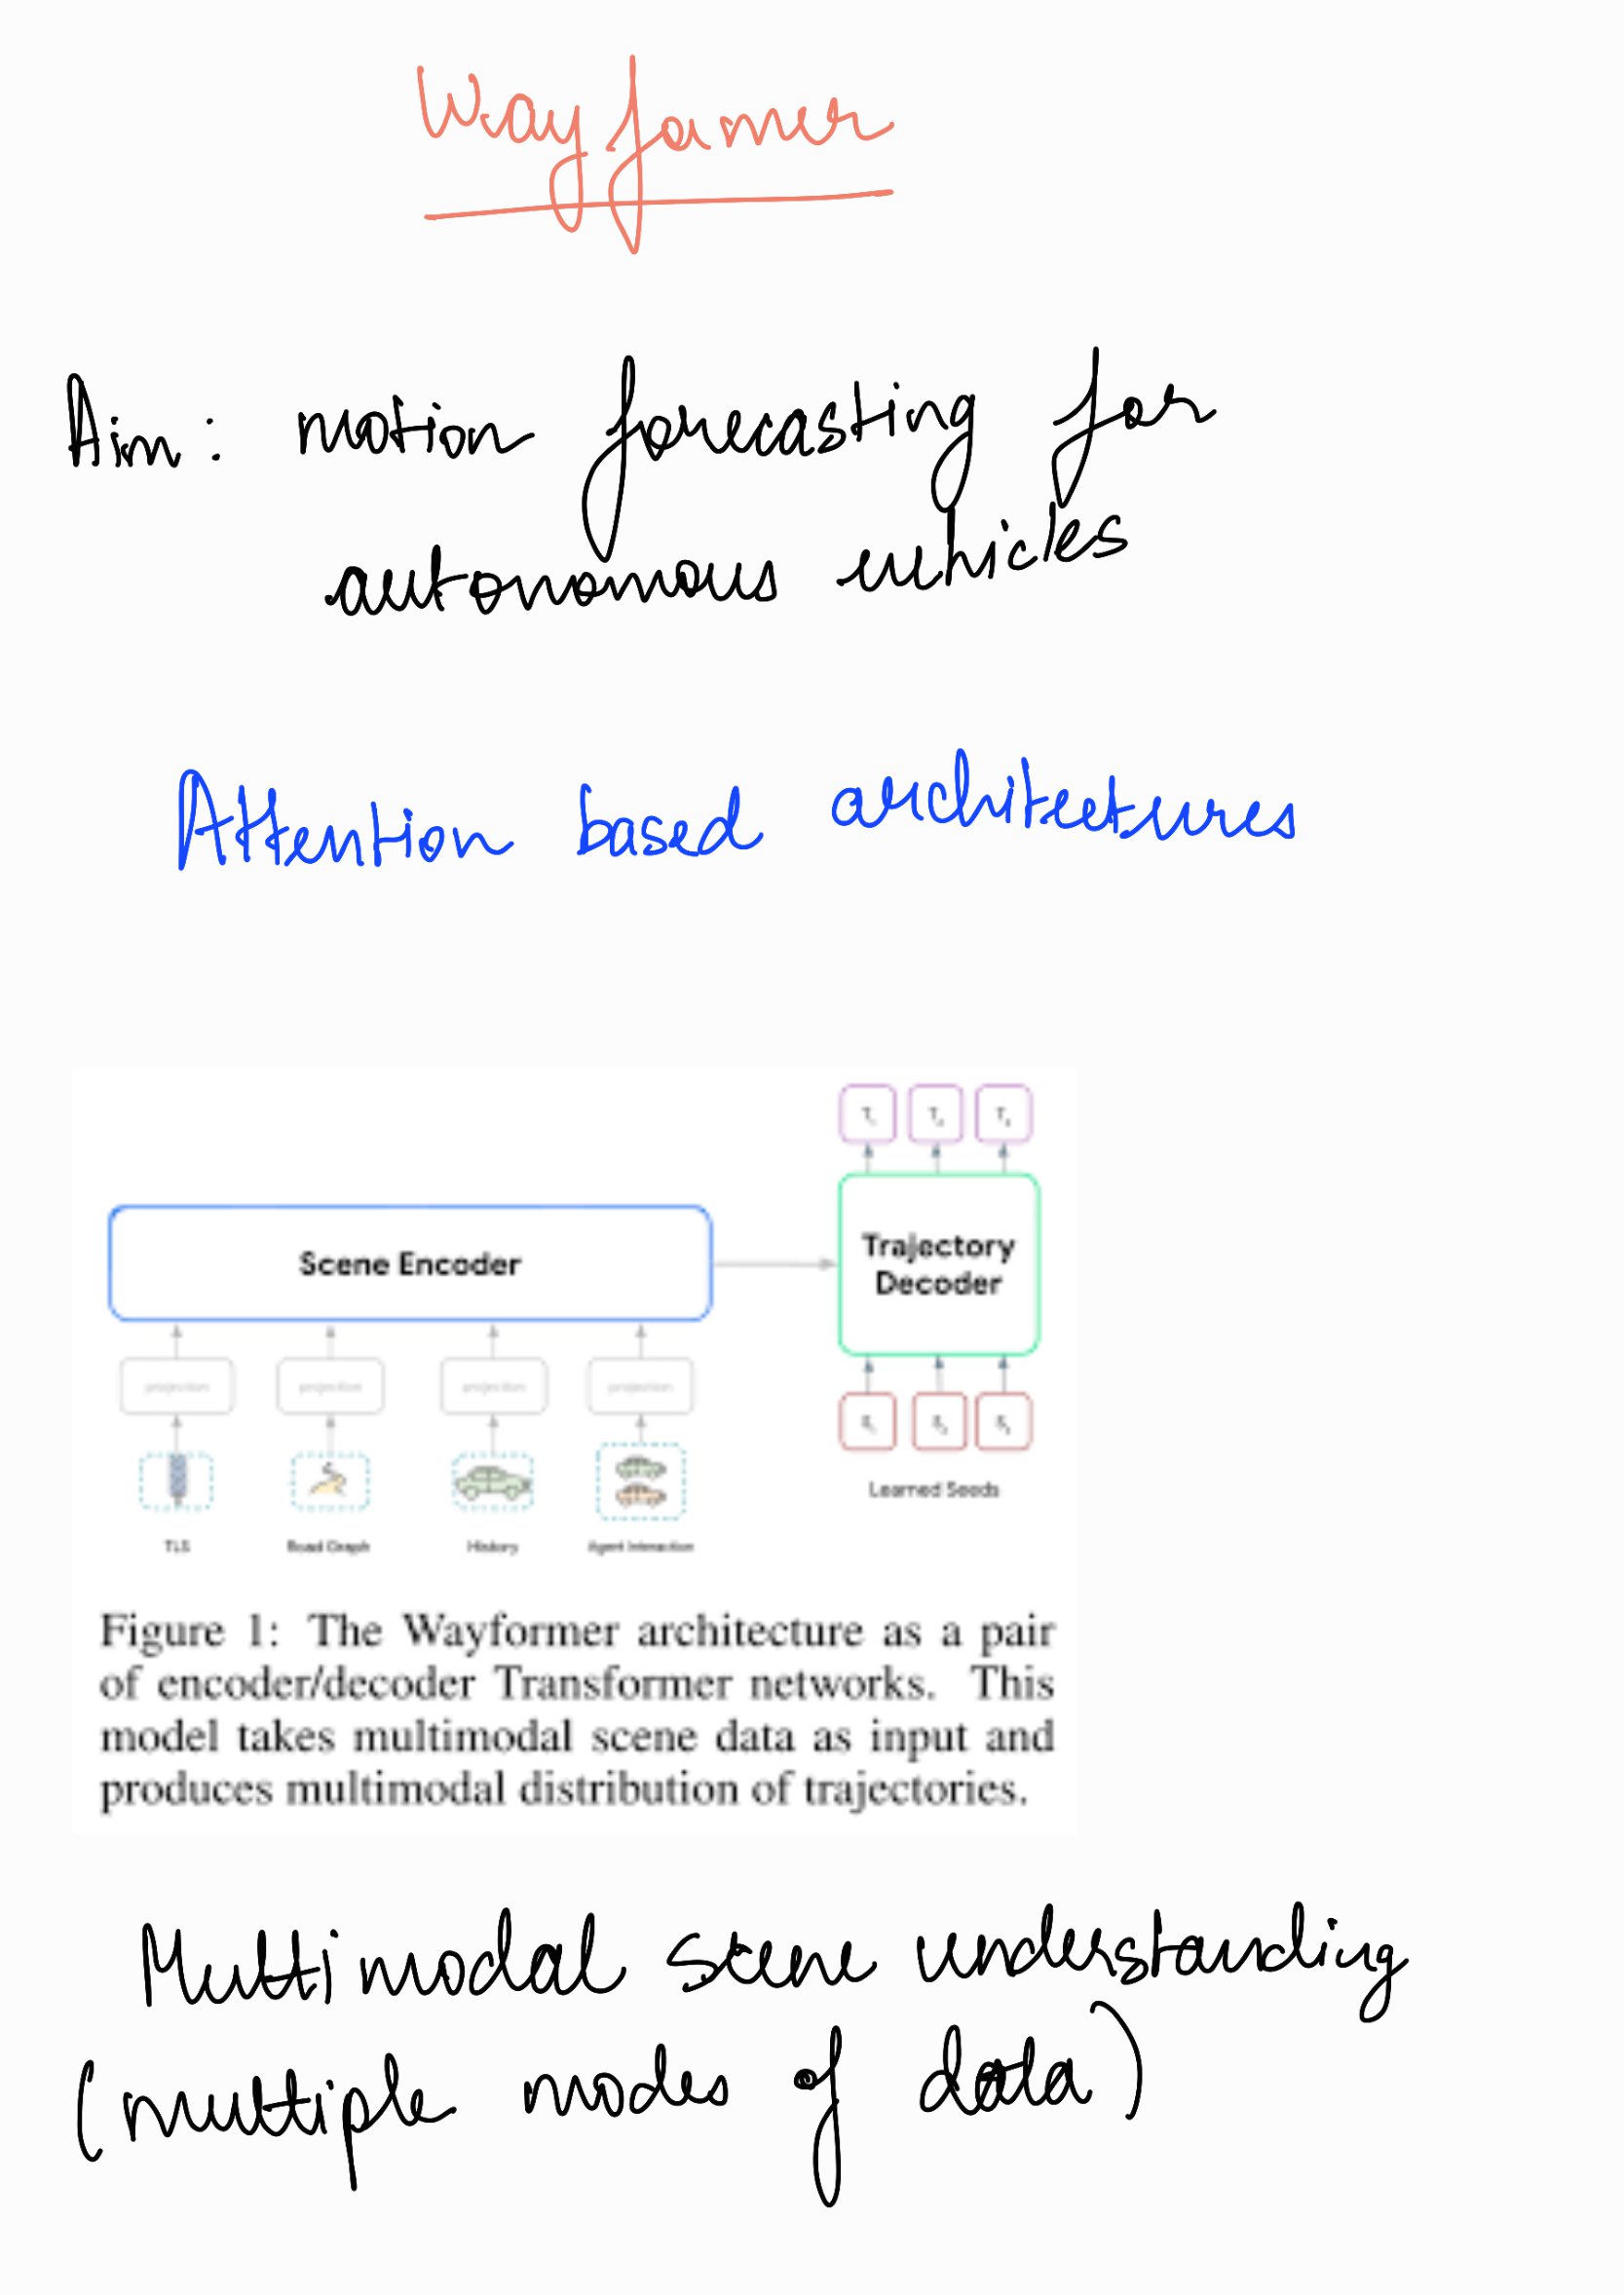 Wayformer
Aim: motion forecasting for
autonomous vehicles
Attention based architectures
T₁ T₂ T₃
Scene Encoder
Trajectory
Decoder
projection projection projection projection
S₁ S₂ S₃
Learned Seeds
TLS Road Graph History Agent Interaction
Figure 1: The Wayformer architecture as a pair
of encoder/decoder Transformer networks. This
model takes multimodal scene data as input and
produces multimodal distribution of trajectories.
Multimodal scene understanding
(multiple modes of data)